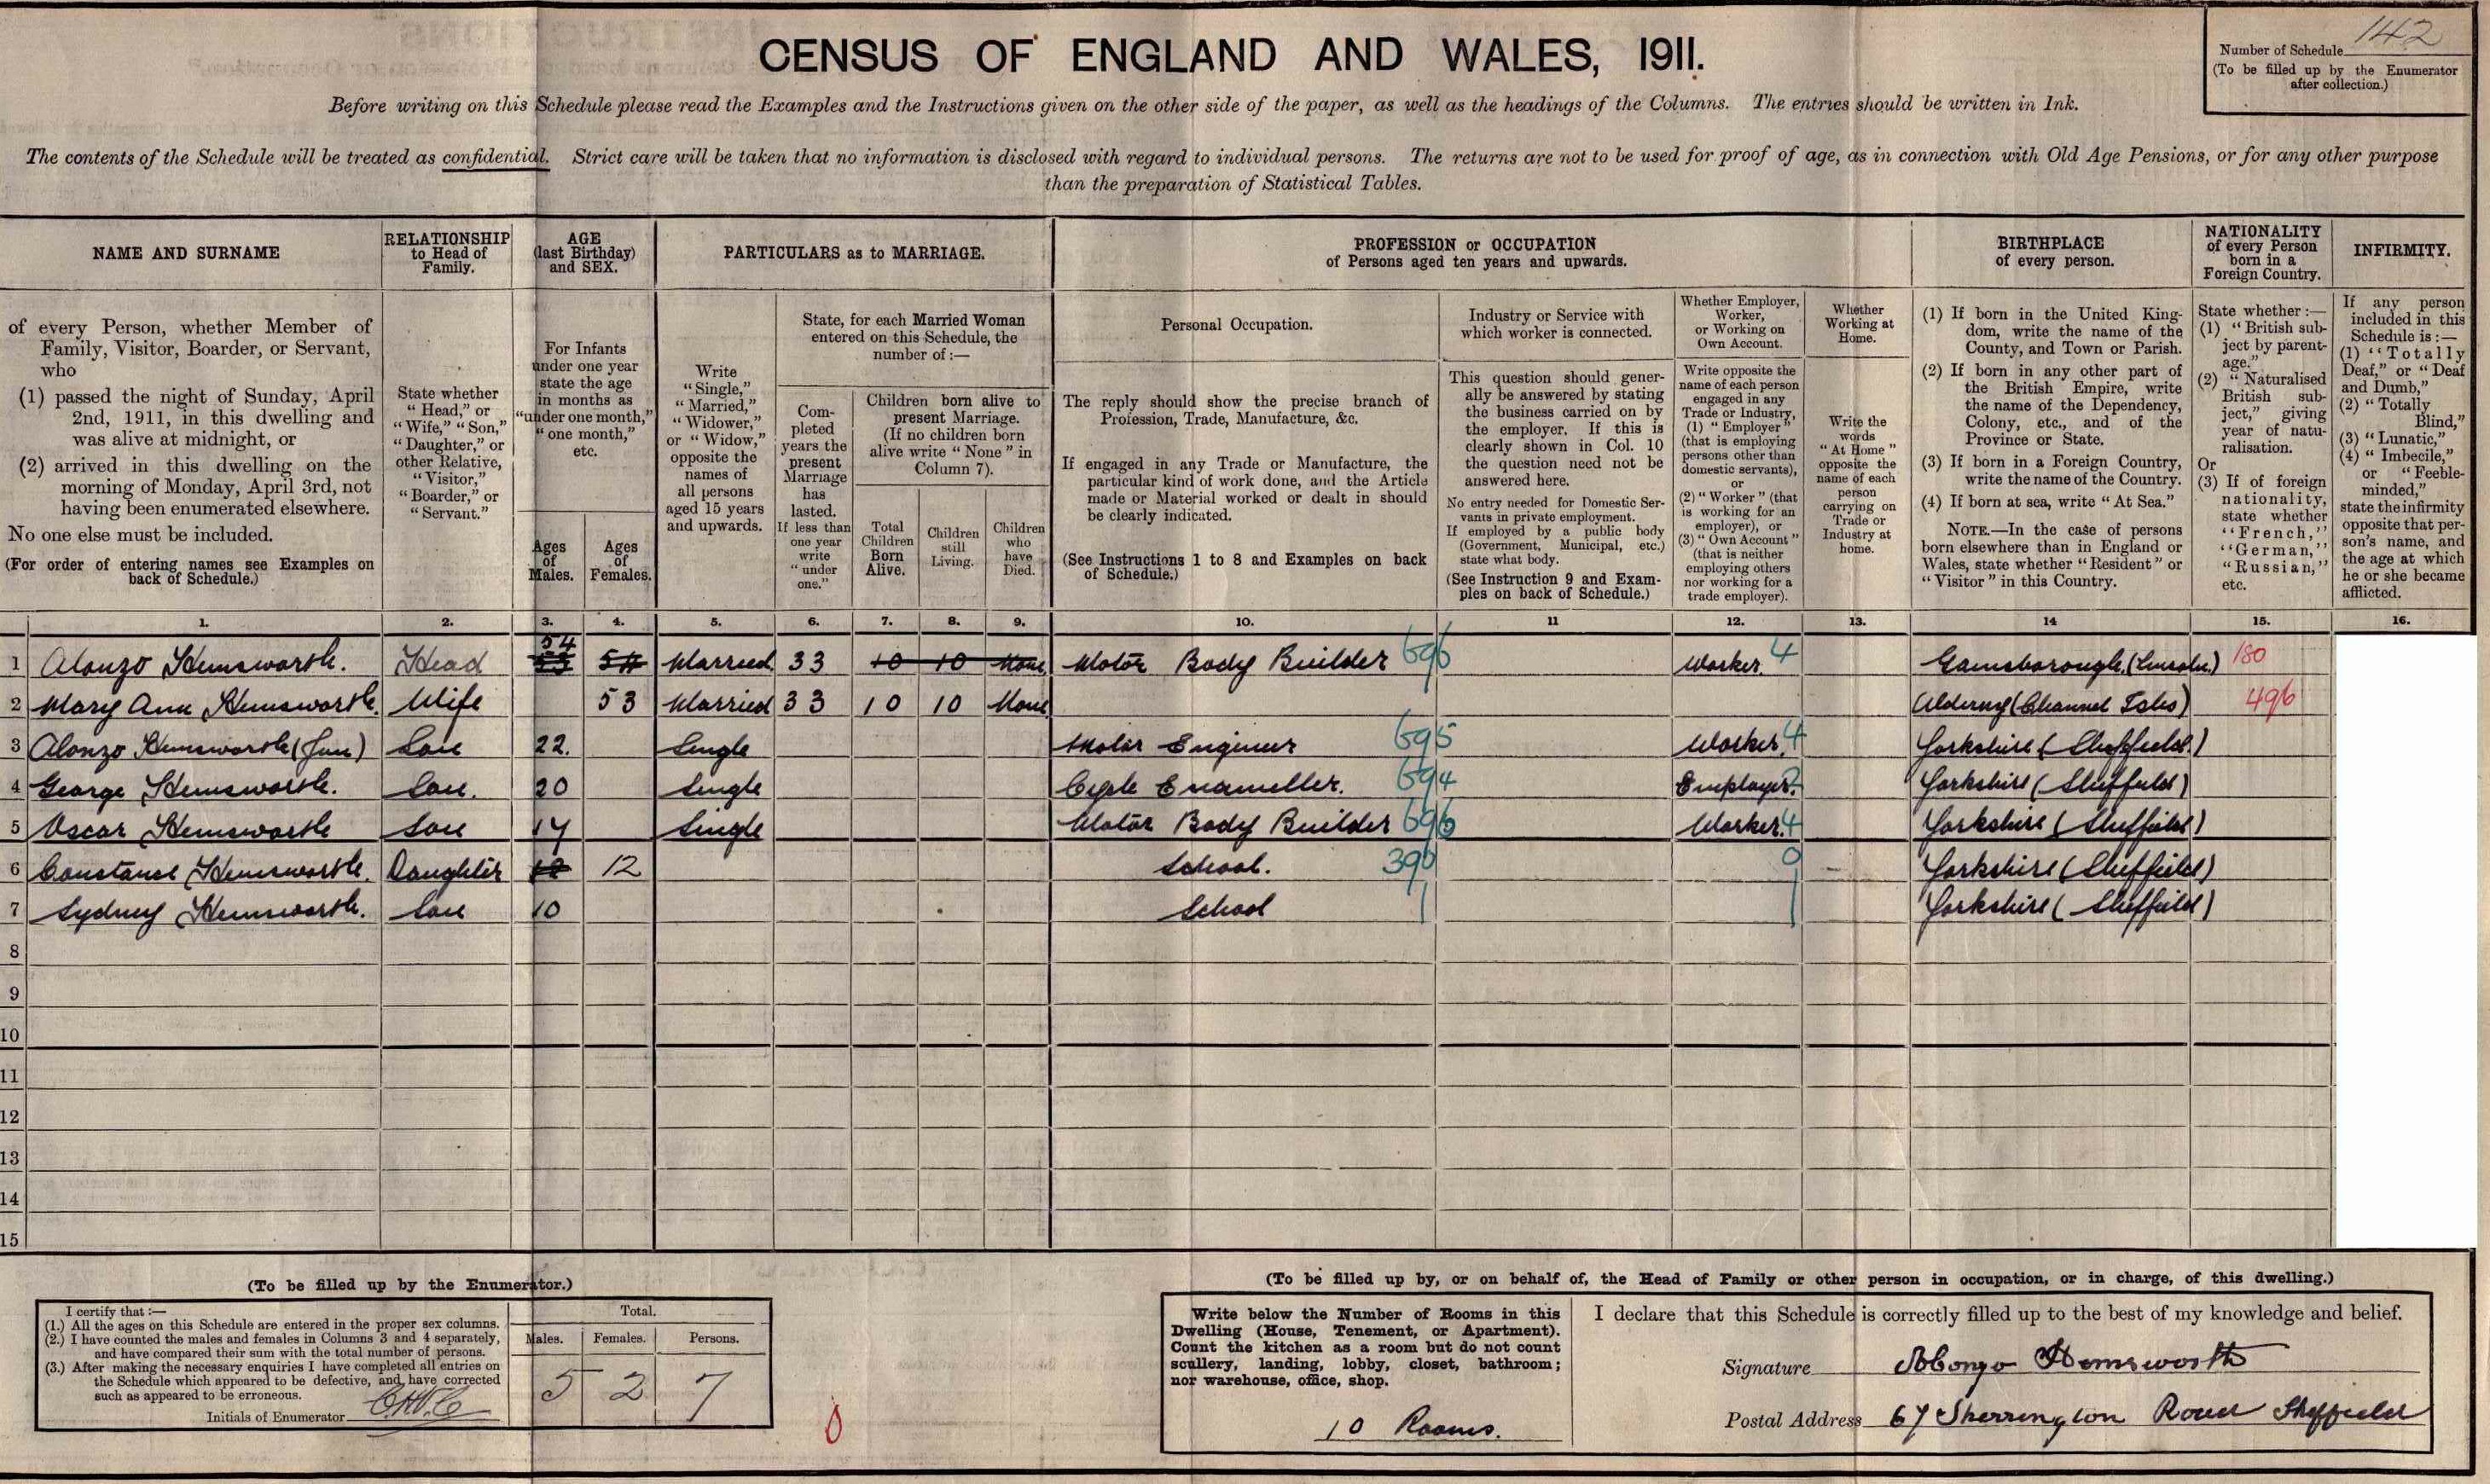 CENSUS OF ENGLAND AND WALES, 1911.
Number of Schedule 142
(To be filled up by the Enumerator
after collection.)
Before writing on this Schedule please read the Examples and the Instructions given on the other side of the paper, as well as the headings of the Columns. The entries should be written in Ink.
The contents of the Schedule will be treated as confidential. Strict care will be taken that no information is disclosed with regard to individual persons. The returns are not to be used for proof of age, as in connection with Old Age Pensions, or for any other purpose
than the preparation of Statistical Tables.
NAME AND SURNAME
of every Person, whether Member of
Family, Visitor, Boarder, or Servant,
who
(1) passed the night of Sunday, April
2nd, 1911, in this dwelling and
was alive at midnight, or
(2) arrived in this dwelling on the
morning of Monday, April 3rd, not
having been enumerated elsewhere.
No one else must be included.
(For order of entering names see Examples on
back of Schedule.)
RELATIONSHIP
to Head of
Family.
State whether
"Head," or
"Wife," "Son,"
"Daughter," or
other Relative,
"Visitor,"
"Boarder," or
"Servant."
AGE
(last Birthday)
and SEX.
For Infants
under one year
state the age
in months as
"under one month,"
"one month,"
etc.
Ages
of
Males.
Ages
of
Females.
PARTICULARS as to MARRIAGE.
Write
"Single,"
"Married,"
"Widower,"
or "Widow,"
opposite the
names of
all persons
aged 15 years
and upwards.
State, for each Married Woman
entered on this Schedule, the
number of:—
Com-
pleted
years the
present
Marriage
has
lasted.
If less than
one year
write
"under
one."
Children born alive to
present Marriage.
(If no children born
alive write "None" in
Column 7).
Total
Children
Born
Alive.
Children
still
Living.
Children
who
have
Died.
PROFESSION or OCCUPATION
of Persons aged ten years and upwards.
Personal Occupation.
The reply should show the precise branch of
Profession, Trade, Manufacture, &c.
If engaged in any Trade or Manufacture, the
particular kind of work done, and the Article
made or Material worked or dealt in should
be clearly indicated.
(See Instructions 1 to 8 and Examples on back
of Schedule.)
Industry or Service with
which worker is connected.
This question should gener-
ally be answered by stating
the business carried on by
the employer. If this is
clearly shown in Col. 10
the question need not be
answered here.
No entry needed for Domestic Ser-
vants in private employment.
If employed by a public body
(Government, Municipal, etc.)
state what body.
(See Instruction 9 and Exam-
ples on back of Schedule.)
Whether Employer,
Worker,
or Working on
Own Account.
Write opposite the
name of each person
engaged in any
Trade or Industry,
(1) "Employer"
(that is employing
persons other than
domestic servants),
or
(2) "Worker" (that
is working for an
employer), or
(3) "Own Account"
(that is neither
employing others
nor working for a
trade employer).
Whether
Working at
Home.
Write the
words
"At Home"
opposite the
name of each
person
carrying on
Trade or
Industry at
home.
BIRTHPLACE
of every person.
(1) If born in the United King-
dom, write the name of the
County, and Town or Parish.
(2) If born in any other part of
the British Empire, write
the name of the Dependency,
Colony, etc., and of the
Province or State.
(3) If born in a Foreign Country,
write the name of the Country.
(4) If born at sea, write "At Sea."
NOTE.—In the case of persons
born elsewhere than in England or
Wales, state whether "Resident" or
"Visitor" in this Country.
NATIONALITY
of every Person
born in a
Foreign Country.
State whether:—
(1) "British sub-
ject by parent-
age."
(2) "Naturalised
British sub-
ject," giving
year of natu-
ralisation.
Or
(3) If of foreign
nationality,
state whether
"French,"
"German,"
"Russian,"
etc.
INFIRMITY.
If any person
included in this
Schedule is:—
(1) "Totally
Deaf," or "Deaf
and Dumb,"
(2) "Totally
Blind,"
(3) "Lunatic,"
(4) "Imbecile,"
or "Feeble-
minded,"
state the infirmity
opposite that per-
son's name, and
the age at which
he or she became
afflicted.
1. 2. 3. 4. 5. 6. 7. 8. 9. 10. 11 12. 13. 14 15. 16.
54
1 Alonzo Hemsworth. Head 53 54 Married 33 10 10 None Motor Body Builder 696 Worker 4 Gainsborough (Lincoln) 180
2 Mary Ann Hemsworth. Wife 53 Married 33 10 10 None Alderney (Channel Isles) 496
3 Alonzo Hemsworth (Jun) Son 22. Single Motor Engineer 695 Worker 4 Yorkshire (Sheffield)
4 George Hemsworth. Son. 20 Single Cycle Enameller. 694 Employer Yorkshire (Sheffield)
5 Oscar Hemsworth Son 17 Single Motor Body Builder 696 Worker 4 Yorkshire (Sheffield)
6 Constance Hemsworth. Daughter 12 12 School. 390 0 Yorkshire (Sheffield)
7 Sydney Hemsworth. Son 10 School Yorkshire (Sheffield)
8
9
10
11
12
13
14
15
(To be filled up by the Enumerator.)
I certify that:—
(1.) All the ages on this Schedule are entered in the proper sex columns.
(2.) I have counted the males and females in Columns 3 and 4 separately,
and have compared their sum with the total number of persons.
(3.) After making the necessary enquiries I have completed all entries on
the Schedule which appeared to be defective, and have corrected
such as appeared to be erroneous.
Initials of Enumerator
Total.
Males. Females. Persons.
5 2 7
0
(To be filled up by, or on behalf of, the Head of Family or other person in occupation, or in charge, of this dwelling.)
Write below the Number of Rooms in this
Dwelling (House, Tenement, or Apartment).
Count the kitchen as a room but do not count
scullery, landing, lobby, closet, bathroom;
nor warehouse, office, shop.
10 Rooms.
I declare that this Schedule is correctly filled up to the best of my knowledge and belief.
Signature Alonzo Hemsworth
Postal Address 67 Sherrington Road Sheffield